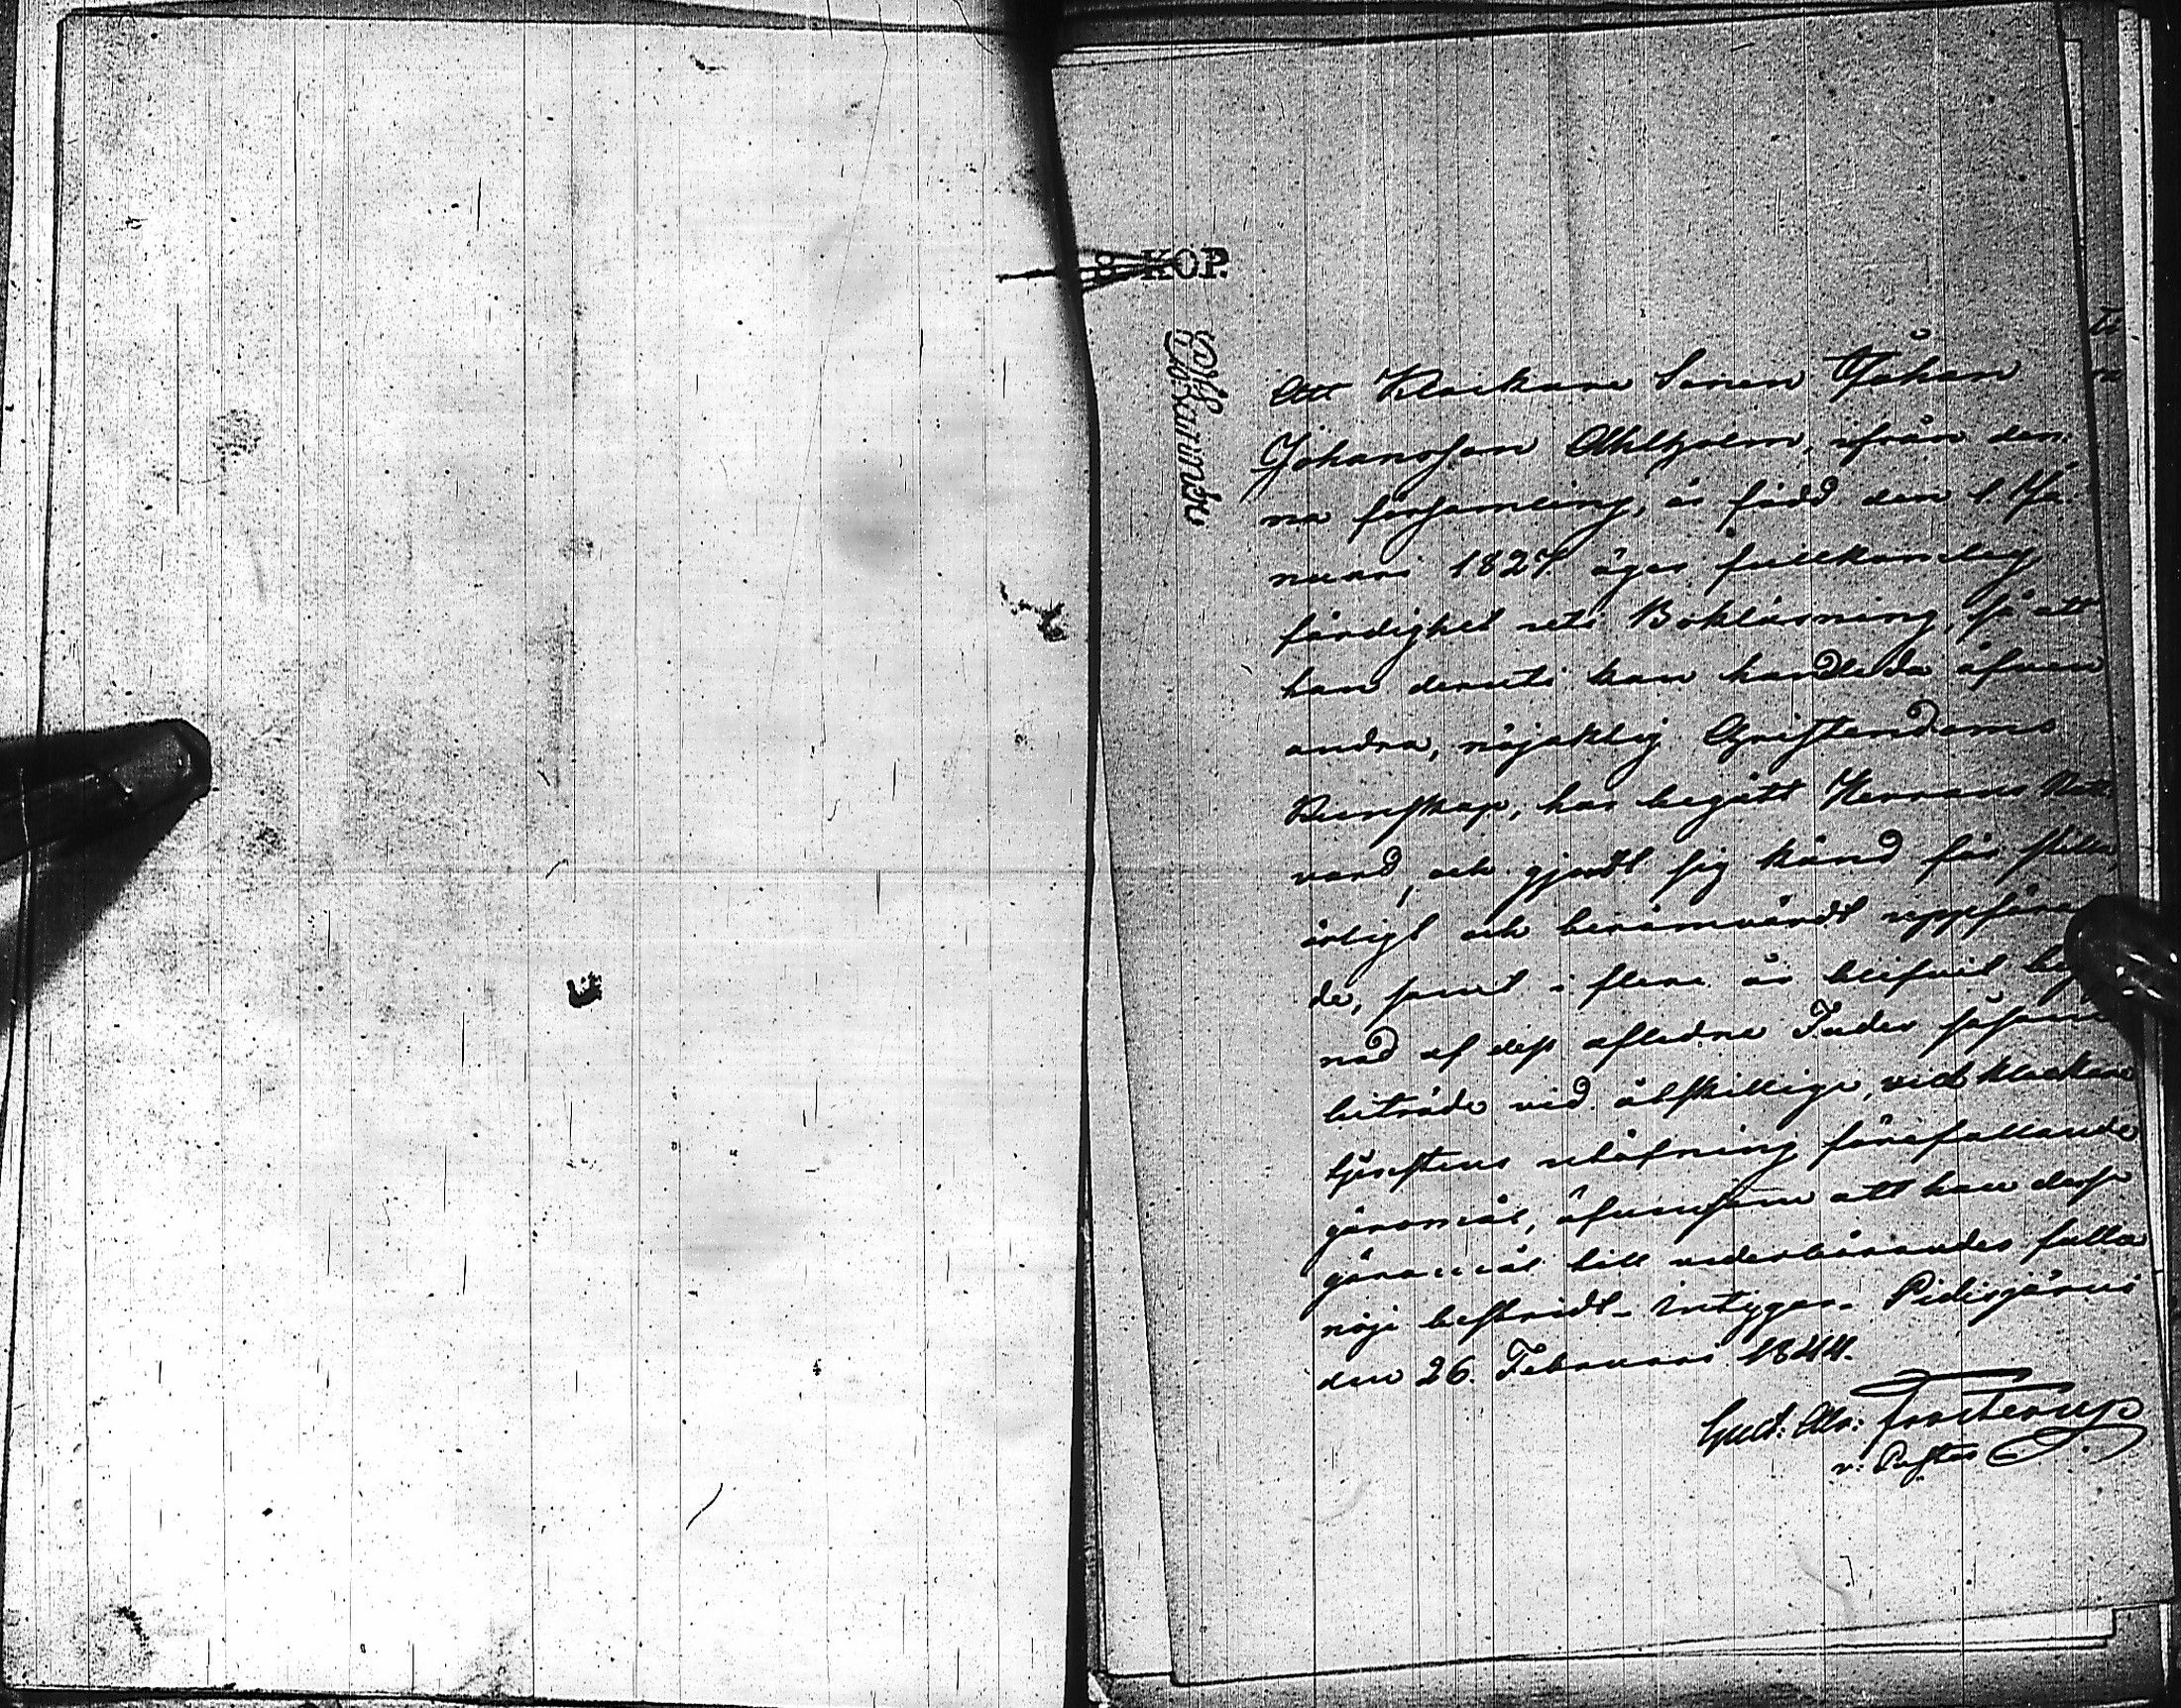 8 KOP.
Att Klockare Sonen Johan
Johansson Ahlholm, ifrån den-
na församling, är född den 1 Ja-
nuari 1827 äger fullkomlig
färdighet uti Bokläsning, så att
han deruti kan handleda äfven
andra, nöjaktig Christendoms
Kunskap, har begått Herrans Natt-
vard, och gjordt sig känd för stilla,
ärligt och berömvärdt uppföran
de, samt i flere år blifvit
nad af dess afledne Fader såsom
biträde vid åtskillige, vid klockare
tjenstens utöfning förefallande
göromål, äfvensom att han dessa
göromål till vederbörandes fulla
nöje bestridt - intygar. Pidisjärvi
den 26. Februari 1844.
Gust. Alr: Frosterus
v. Pastor